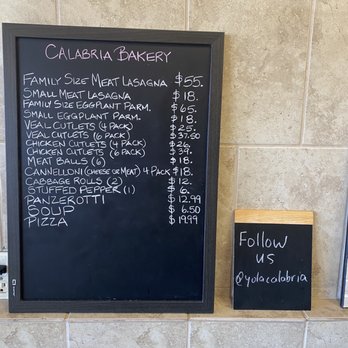 CALABRIA BAKERY
FAMILY SIZE MEAT LASAGNA $55.
SMALL MEAT LASAGNA $18.
FAMILY SIZE EGGPLANT PARM. $65.
SMALL EGGPLANT PARM. $18.
VEAL CUTLETS (4 PACK) $25.
VEAL CUTLETS (6 PACK) $37.50
CHICKEN CUTLETS (4 PACK) $26.
CHICKEN CUTLETS (6 PACK) $39.
MEAT BALLS (6) $18.
CANNELLONI (CHEESE OR MEAT) 4 PACK $18.
CABBAGE ROLLS (2) $12.
STUFFED PEPPER (1) $6.
PANZEROTTI $12.99
SOUP $6.50
PIZZA $19.99
Follow
us
@yolacalabria